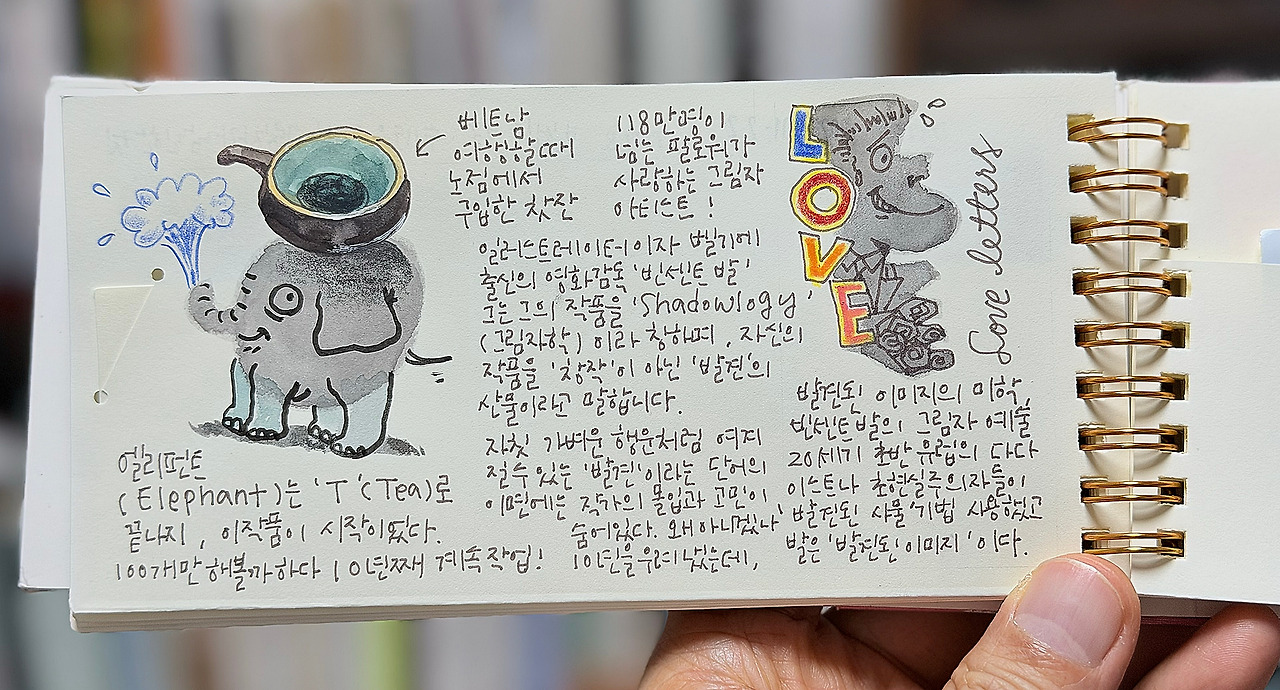 베트남
여행중일때
노점에서
구입한 찻잔
118만명이
넘는 팔로워가
사랑하는 그림자
아티스트!
일러스트레이터이자 벨기에
출신의 영화감독 '빈센트 발'
그는 그의 작품을 'Shadowlogy'
(그림자학)이라 칭하며, 자신의
작품을 '창작'이 아닌 '발견'의
산물이라고 말합니다.
자칫 가벼운 행운처럼 여겨
질수 있는 '발견'이라는 단어의
이면에는 작가의 몰입과 고민이
숨어있다. 왜 아니겠나
10년을 우려냈는데,
엘리펀트
(Elephant)는 'T'(Tea)로
끝나지, 이작품이 시작이었다.
100개만 해볼까하다 10년째 계속작업!
LOVE
Love letters
발견된 이미지의 미학,
빈센트발의 그림자 예술
20세기 초반 유럽의 다다
이스트나 초현실주의자들이
'발견된 사물'기법 사용했고
발은 '발견된 이미지'이다.